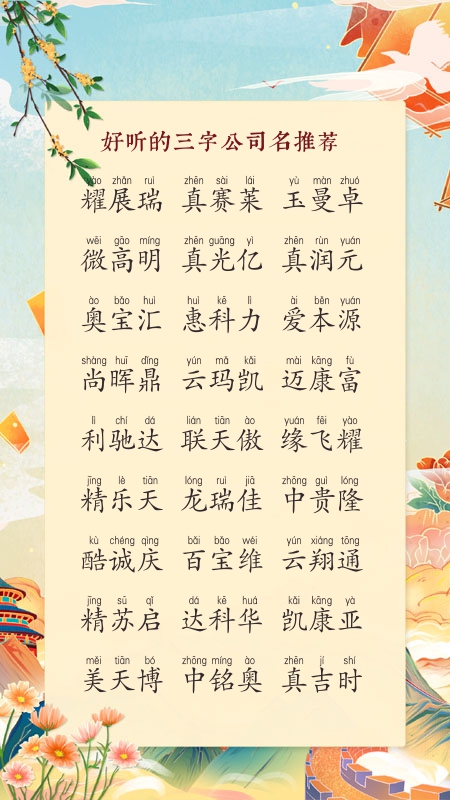 好听的三字公司名推荐
yào zhǎn ruì zhēn sài lái yù màn zhuó
耀展瑞 真赛莱 玉曼卓
wēi gāo míng zhēn guāng yì zhēn rùn yuán
微高明 真光亿 真润元
ào bǎo huì huì kē lì ài běn yuán
奥宝汇 惠科力 爱本源
shàng huī dǐng yún mǎ kǎi mài kāng fù
尚晖鼎 云玛凯 迈康富
lì chí dá lián tiān ào yuán fēi yào
利驰达 联天傲 缘飞耀
jīng lè tiān lóng ruì jiā zhōng guì lóng
精乐天 龙瑞佳 中贵隆
kù chéng qìng bǎi bǎo wéi yún xiáng tōng
酷诚庆 百宝维 云翔通
jīng sū qǐ dá kē huá kǎi kāng yà
精苏启 达科华 凯康亚
měi tiān bó zhōng míng ào zhēn jí shí
美天博 中铭奥 真吉时